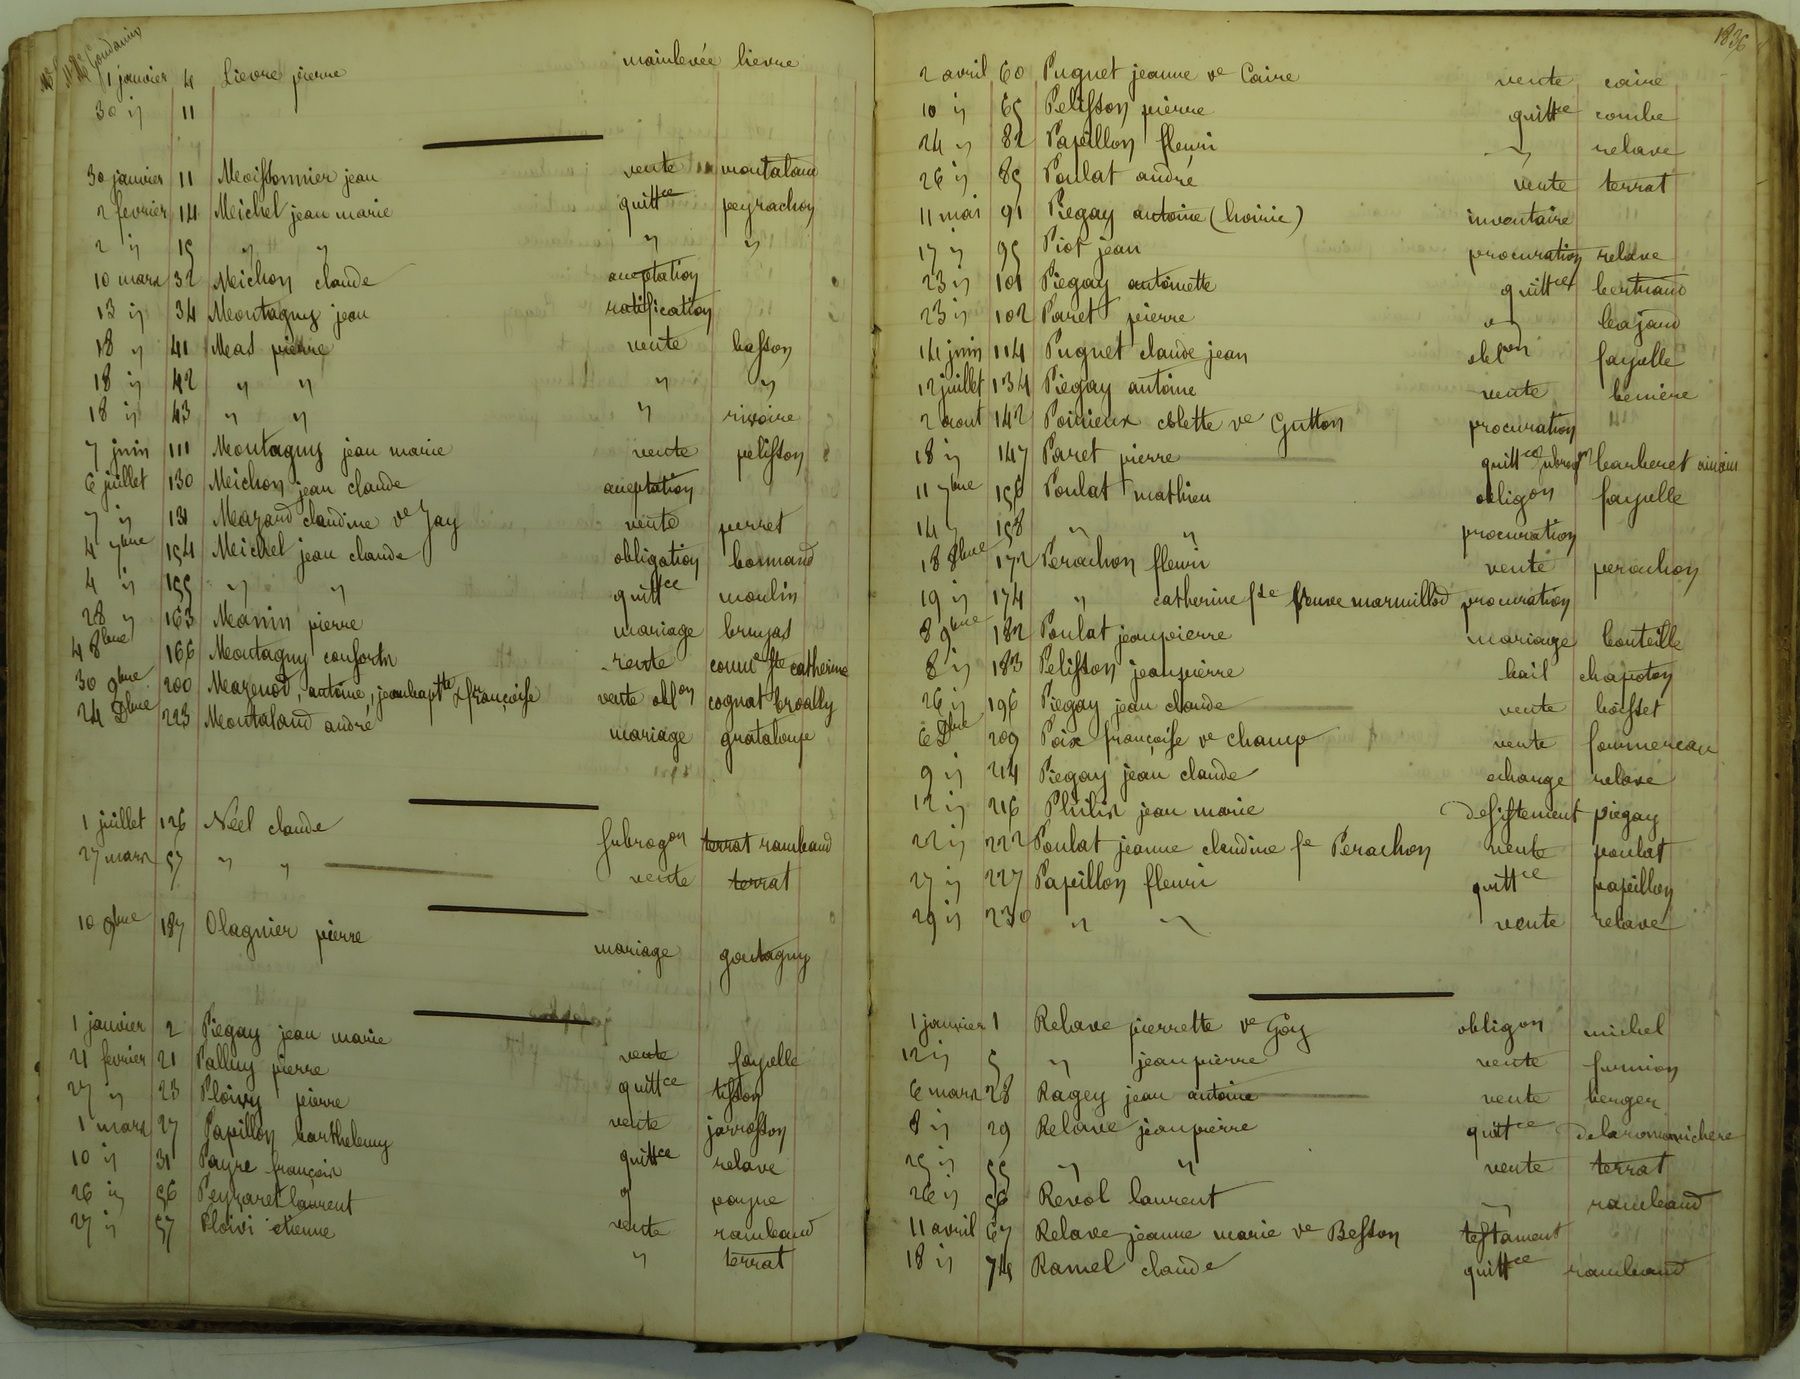 1 janvier 4 Lievre pierre mainlevée lievre
30 ij 11
30 janvier 11 Meissonnier jean vente montaland
2 fevrier 14 Meichel jean marie quittce peyrachon
2 ij 15 " " " "
10 mars 32 Meichon claude acceptation
13 ij 34 Montagny jean ratification
18 " 41 Mas pierre vente basson
18 ij 42 " " " "
18 ij 43 " " " rivoire
7 juin 111 Montagny jean marie vente pelisson
6 juillet 130 Meichon jean claude acceptation
7 ij 131 Mazard claudine ve Jay vente perret
4 7bre 154 Meichel jean claude obligation bonnand
4 ij 155 " " quittce moulin
28 " 163 Manin pierre mariage bruyas
4 8bre 166 Montagny consorts vente comme ste catherine
30 9bre 200 Mazenod, antoine, jeanbaptte & françoise vente oblon cognat broally
24 Dbre 223 Montaland andré mariage grataloup
1 juillet 126 Néel claude subrogon terrat rambaud
27 mars 57 " " vente terrat
10 9bre 187 Olagnier pierre mariage goutagny
1 janvier 2 Piegay jean marie vente fayelle
21 fevrier 21 Palluy pierre quittce tisson
27 " 23 Ploivy pierre vente jarrosson
1 mars 27 Papillon barthelemy quittce relave
10 ij 31 Payre françois " payre
26 ij 56 Peyraret laurent vente rambaud
27 ij 57 Ploivi etienne " terrat
1836
2 avril 60 Pugnet jeanne ve Caire vente caire
10 ij 65 Pelisson pierre quittce combe
24 " 82 Papillon fleuri " relave
26 ij 85 Poulat andré vente terrat
11 mai 91 Piegay antoine (hoirie) inventaire
17 ij 95 Piot jean procuration relave
23 ij 101 Piegay antoinette quittce bertrand
23 ij 102 Paret pierre " bajard
14 juin 114 Pugnet claude jean oblon fayelle
12 juillet 134 Piegay antoine vente beniere
2 aout 142 Poirieux colette ve Gutton procuration
18 ij 147 Paret pierre quittce subrogon barberet
11 7bre 156 Poulat mathieu obligon fayelle
14 " 158 " " procuration
18 8bre 172 Perachon fleuri vente perachon
19 ij 174 " catherine fde procuration
8 9bre 182 Poulat jeanpierre mariage bouteille
8 ij 183 Pelisson jeanpierre bail chapoton
26 ij 196 Piegay jean claude vente boisset
6 Dbre 209 Poix françoise ve champ vente fournereau
9 ij 214 Piegay jean claude echange relave
12 ij 216 Philis jean marie desistement piegay
22 ij 222 Poulat jeanne claudine fe Perachon vente poulat
27 ij 227 Papillon fleuri quittce papillon
29 ij 230 " " vente relave
1 janvier 1 Relave pierrette ve Goy obligon michel
12 ij 5 " jeanpierre vente furnion
6 mars 28 Ragey jean antoine vente berger
8 ij 29 Relave jeanpierre quittce delaromichere
25 ij 55 " " vente terrat
26 ij 56 Revol laurent " rambaud
11 avril 67 Relave jeanne marie ve Besson testament
18 ij 74 Ramel claude quittce rambaud